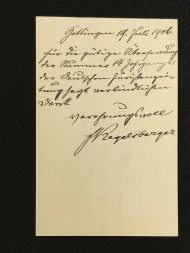 Göttingen 19. Juli 1906
für die gütige Übersendung
der Nummer 14 Jahrgangs
der Deutschen Juristenzei-
tung sagt verbindlichen
Dank
verehrungsvoll
F Regelsberger